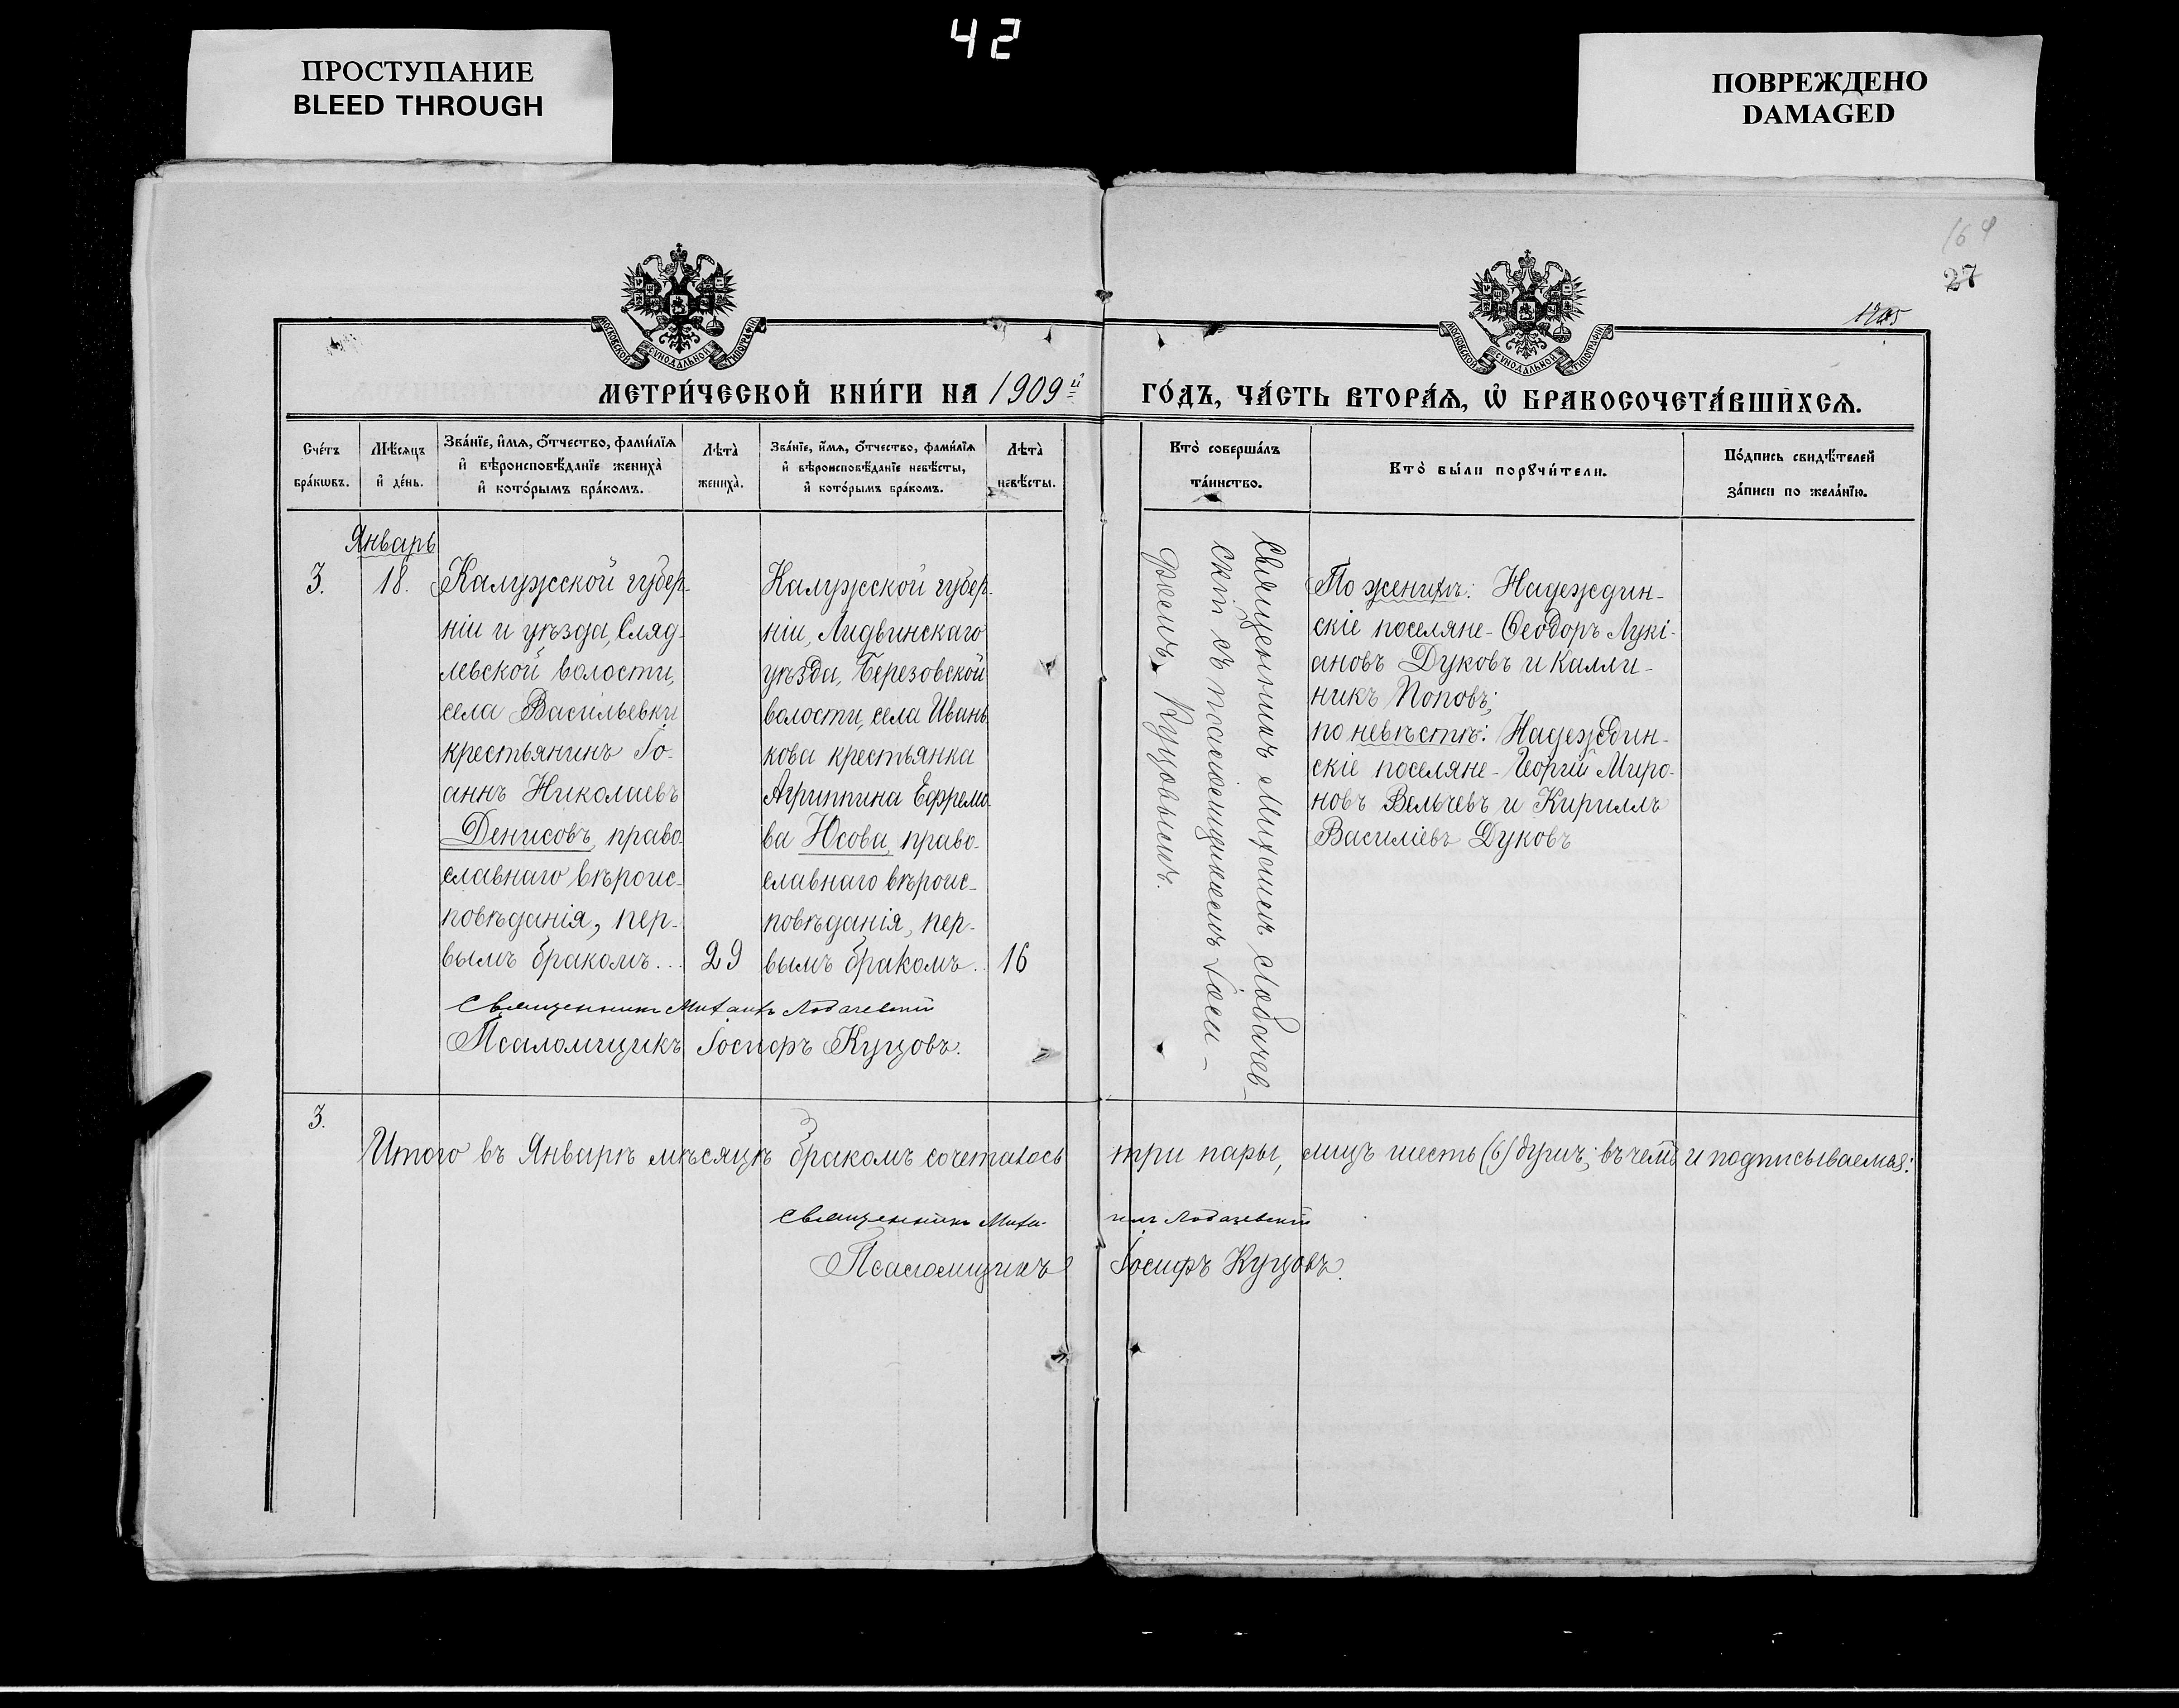 42
ПРОСТУПАНИЕ
BLEED THROUGH
ПОВРЕЖДЕНО
DAMAGED
27
МОСКОВСКОЙ СѴНОДАЛЬНОЙ ТИПОГРАФІИ
МОСКОВСКОЙ СѴНОДАЛЬНОЙ ТИПОГРАФІИ
МЕТРИ́ЧЕСКОЙ КНИ́ГИ НА 1909й
ГО́ДЪ, ЧА́СТЬ ВТОРА́Ѧ, Ѡ҆ БРАКОСОЧЕТА́ВШИХСѦ.
Сче́тъ
бра́кѡвъ.
Мѣ́сѧцъ
и҆ де́нь.
Зва́нїе, и҆́мѧ, ѻ҆́тчество, фами́лїѧ
и҆ вѣроисповѣ́данїе жениха̀
и҆ кото́рымъ бра́комъ.
Лѣта̀
жениха̀.
Зва́нїе, и҆́мѧ, ѻ҆́тчество, фами́лїѧ
и҆ вѣроисповѣ́данїе невѣ́сты,
и҆ кото́рымъ бра́комъ.
Лѣта̀
невѣ́сты.
Кто̀ соверша́лъ
та́инство.
Кто̀ бы́ли порꙋчи́тели.
По́дпись свидѣ́телей
за́писи по жела́нїю.
Январь
3.
18.
Калужской губер-
ніи и уѣзда, Сляд-
левской волости,
села Васильевки
крестьянинъ Іо-
аннъ Николаевъ
Денисовъ, право-
славнаго вѣроис-
повѣданія, пер-
вымъ бракомъ...
29
Калужской губер-
ніи, Лидвинскаго
уѣзда, Березовской
волости, села Ивань-
кова крестьянка
Агриппина Ефремо-
ва Юсова, право-
славнаго вѣроис-
повѣданія, пер-
вымъ бракомъ..
16
Священникъ Михаилъ Лобачев-
скій съ псаломщикомъ Іоси-
фомъ Куцовымъ.
По женихѣ: Надеждин-
скіе поселяне - Ѳеодоръ Лукі-
ановъ Дуковъ и Калли-
никъ Поповъ;
по невѣстѣ: Надеждин-
скіе поселяне - Георгій Миро-
новъ Вельчевъ и Кириллъ
Василіевъ Дуковъ
Священникъ Михаилъ Лобачевскій
Псаломщикъ Іосифъ Куцовъ.
3.
Итого въ Январѣ мѣсяцѣ бракомъ сочеталось три пары, лицъ шесть (6) душъ; въ чемъ и подписываемся:
Священникъ Михаилъ Лобачевскій
Псаломщикъ Іосифъ Куцовъ.